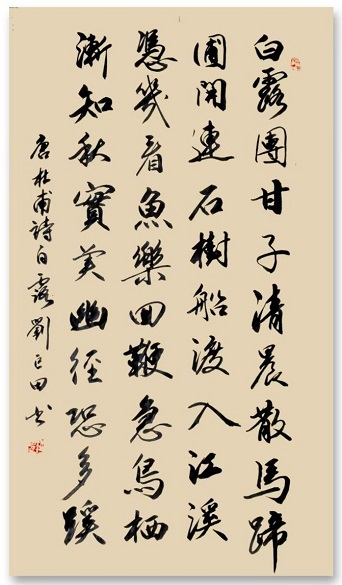 白露團甘子清晨散馬蹄
圃開連石樹船渡入江溪
憑幾看魚樂回鞭急鳥栖
漸知秋實美幽徑恐多蹊
唐杜甫詩白露劉正田书